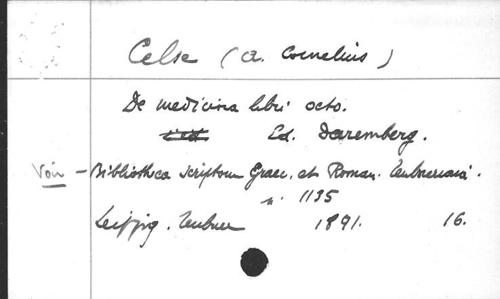 Celse (A. Cornelius)
De medicina libri octo.
Ed. Daremberg.
Voir – Bibliotheca scriptorum Graec. et Roman. Teubneriana.
n° 1135
Leipzig. Teubner 1891. 16.